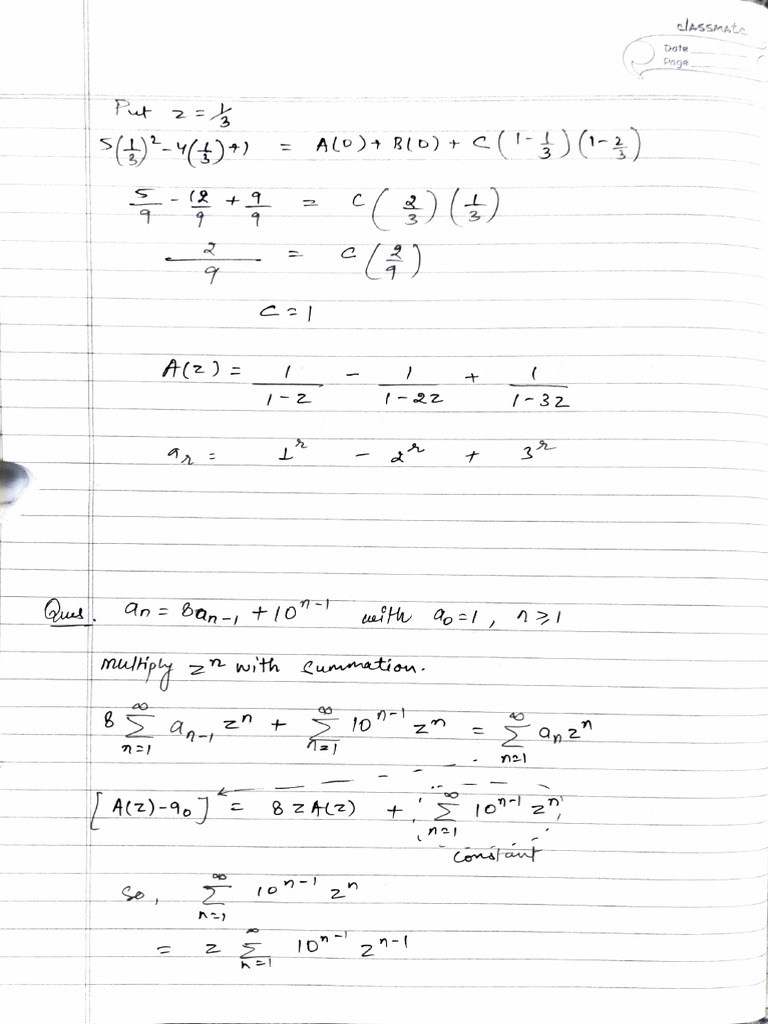 classmate
Date
Page
Put z = 1/3
5(1/3)² - 4(1/3) + 1 = A(0) + B(0) + C(1 - 1/3)(1 - 2/3)
5/9 - 12/9 + 9/9 = C(2/3)(1/3)
2/9 = C(2/9)
C = 1
A(z) = 1/(1-z) - 1/(1-2z) + 1/(1-3z)
aᵣ = 1ʳ - 2ʳ + 3ʳ
Ques. aₙ = 8aₙ₋₁ + 10ⁿ⁻¹ with a₀ = 1, n ≥ 1
multiply zⁿ with summation.
8 ∑_{n=1}^{∞} aₙ₋₁ zⁿ + ∑_{n=1}^{∞} 10ⁿ⁻¹ zⁿ = ∑_{n=1}^{∞} aₙ zⁿ
[A(z) - a₀] = 8 z A(z) + ∑_{n=1}^{∞} 10ⁿ⁻¹ zⁿ
constant
So, ∑_{n=1}^{∞} 10ⁿ⁻¹ zⁿ
= z ∑_{n=1}^{∞} 10ⁿ⁻¹ zⁿ⁻¹